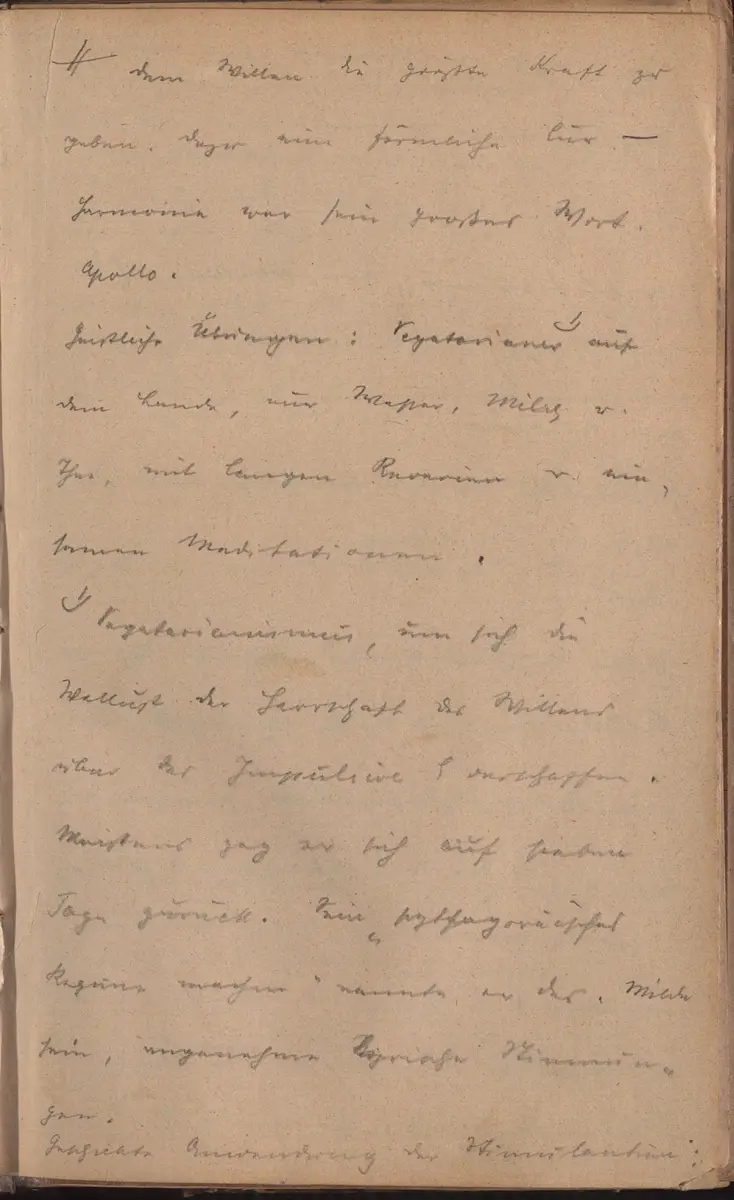 # dem Willen die größte Kraft zu
geben. Dazu eine förmliche Cur —
Harmonie war sein großes Wort.
Apollo.
Geistliche Übungen: Vegetarianer auf
dem Lande, nur Wasser, Milch u.
Thee, mit langen Reverien u. ein-
samen Meditationen.
Vegetarianismus, um sich die
Wollust der Herrschaft des Willens
über das Impulsive zu verschaffen.
Meistens zog er sich auf sieben
Tage zurück. Sein „pythagoräisches
Regime machen" nannte er das. Milde
sein, angenehme lyrische Stimmun-
gen.
Geschickte Anwendung der Stimulantien: